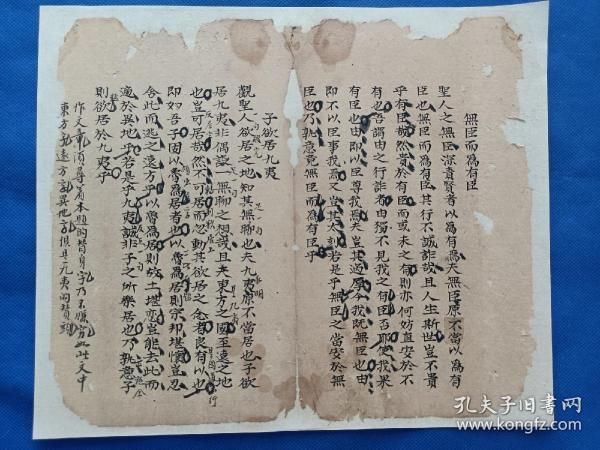 無臣而為有臣
聖人之無臣深責賢者以為有焉夫無臣原不當以為有
臣也無臣而為有臣其行不誠詐哉且人生斯世豈不貴
乎有臣哉然貴於有臣而或未之有則亦何妨直安於不
有也吾謂由之行詐者由獨不見我之有臣否耶使我果
有臣也由即以臣尊我焉夫豈其過原今我既無臣也由
即不以臣事我焉又豈其太刻若是乎無臣之當安於無
臣也乃孰意竟無臣而為有臣乎
子欲居九夷
觀聖人欲居之地知其無聊也夫九夷原不當居也子欲
居九夷非偶設一無聊之想哉且夫東方之國至遠之地
也豈可居哉然不可居而忽動其欲居之念者良有以也
即如吾子固以魯為居者也以魯為居則宗邦堪懷豈忍
舍此而逃之遠方乎以魯為居則故土堪戀豈能去此而
適於異地乎若是乎九夷誠非子之所樂居也乃孰意子
則欲居於九夷乎
作文章須尋着本題的替身字乃不
東方 遠方 異地 俱是九夷的替
孔夫子旧书网
www.kongfz.com